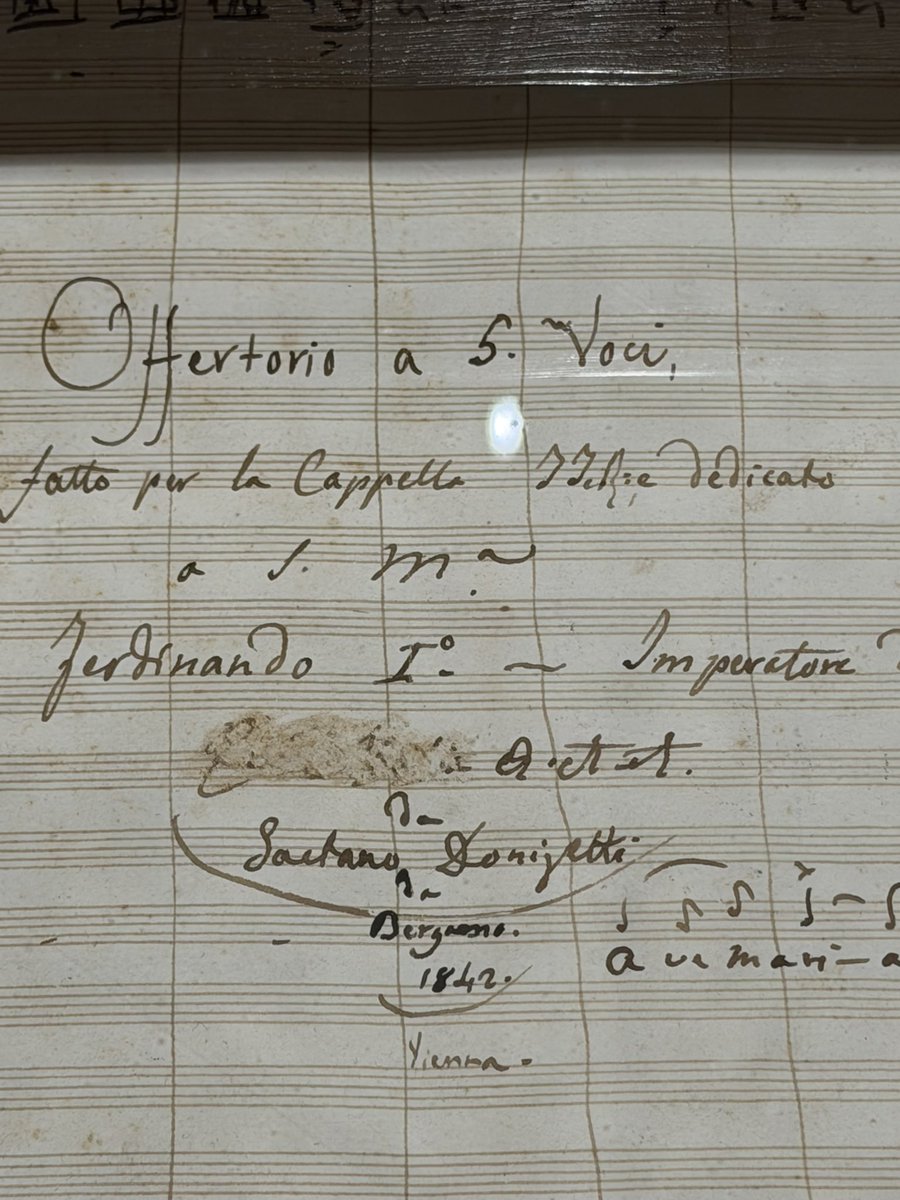 Offertorio a 5. Voci,
fatto per la Cappella dedicato
a S. M.a
Ferdinando I.o — Imperatore
da
Gaetano Donizetti
da
Bergamo.
1842.
Ave mari–a
Vienna.